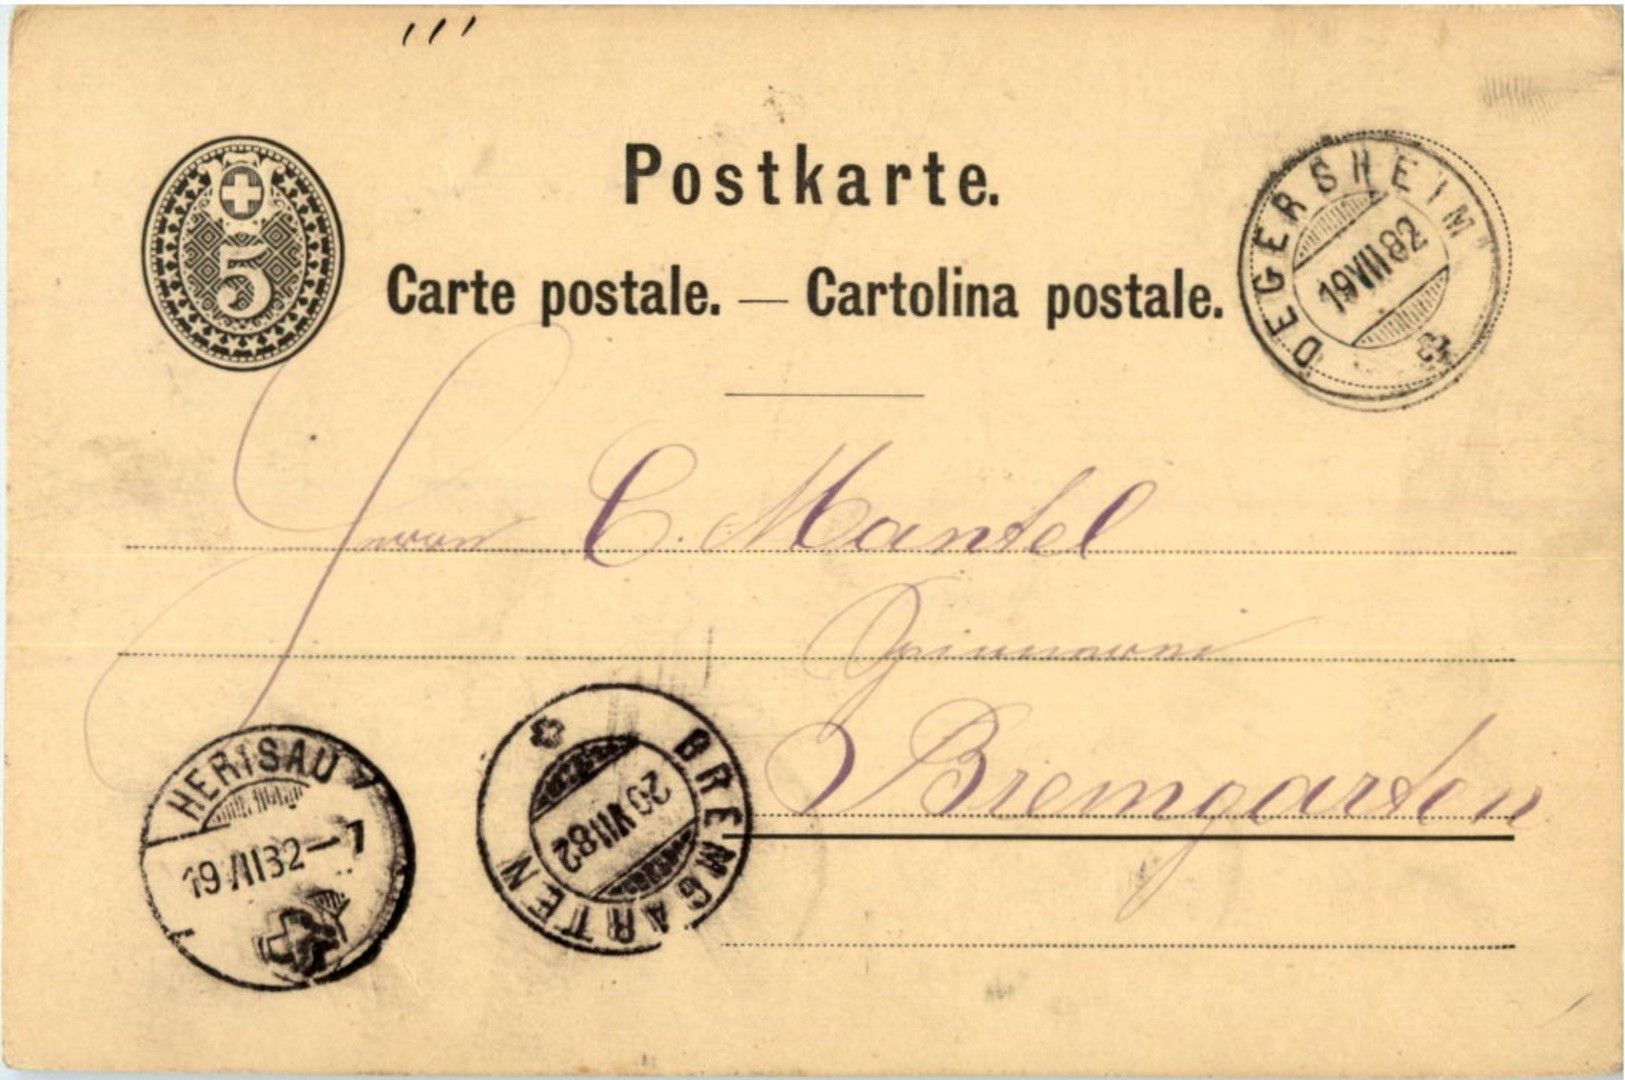 5
Postkarte.
Carte postale. — Cartolina postale.
DEGERSHEIM
19 VII 82
Herrn C. Mantel
Spinnerei
Bremgarten
HERISAU
19 VII 82 – 7
BREMGARTEN
20 VII 82